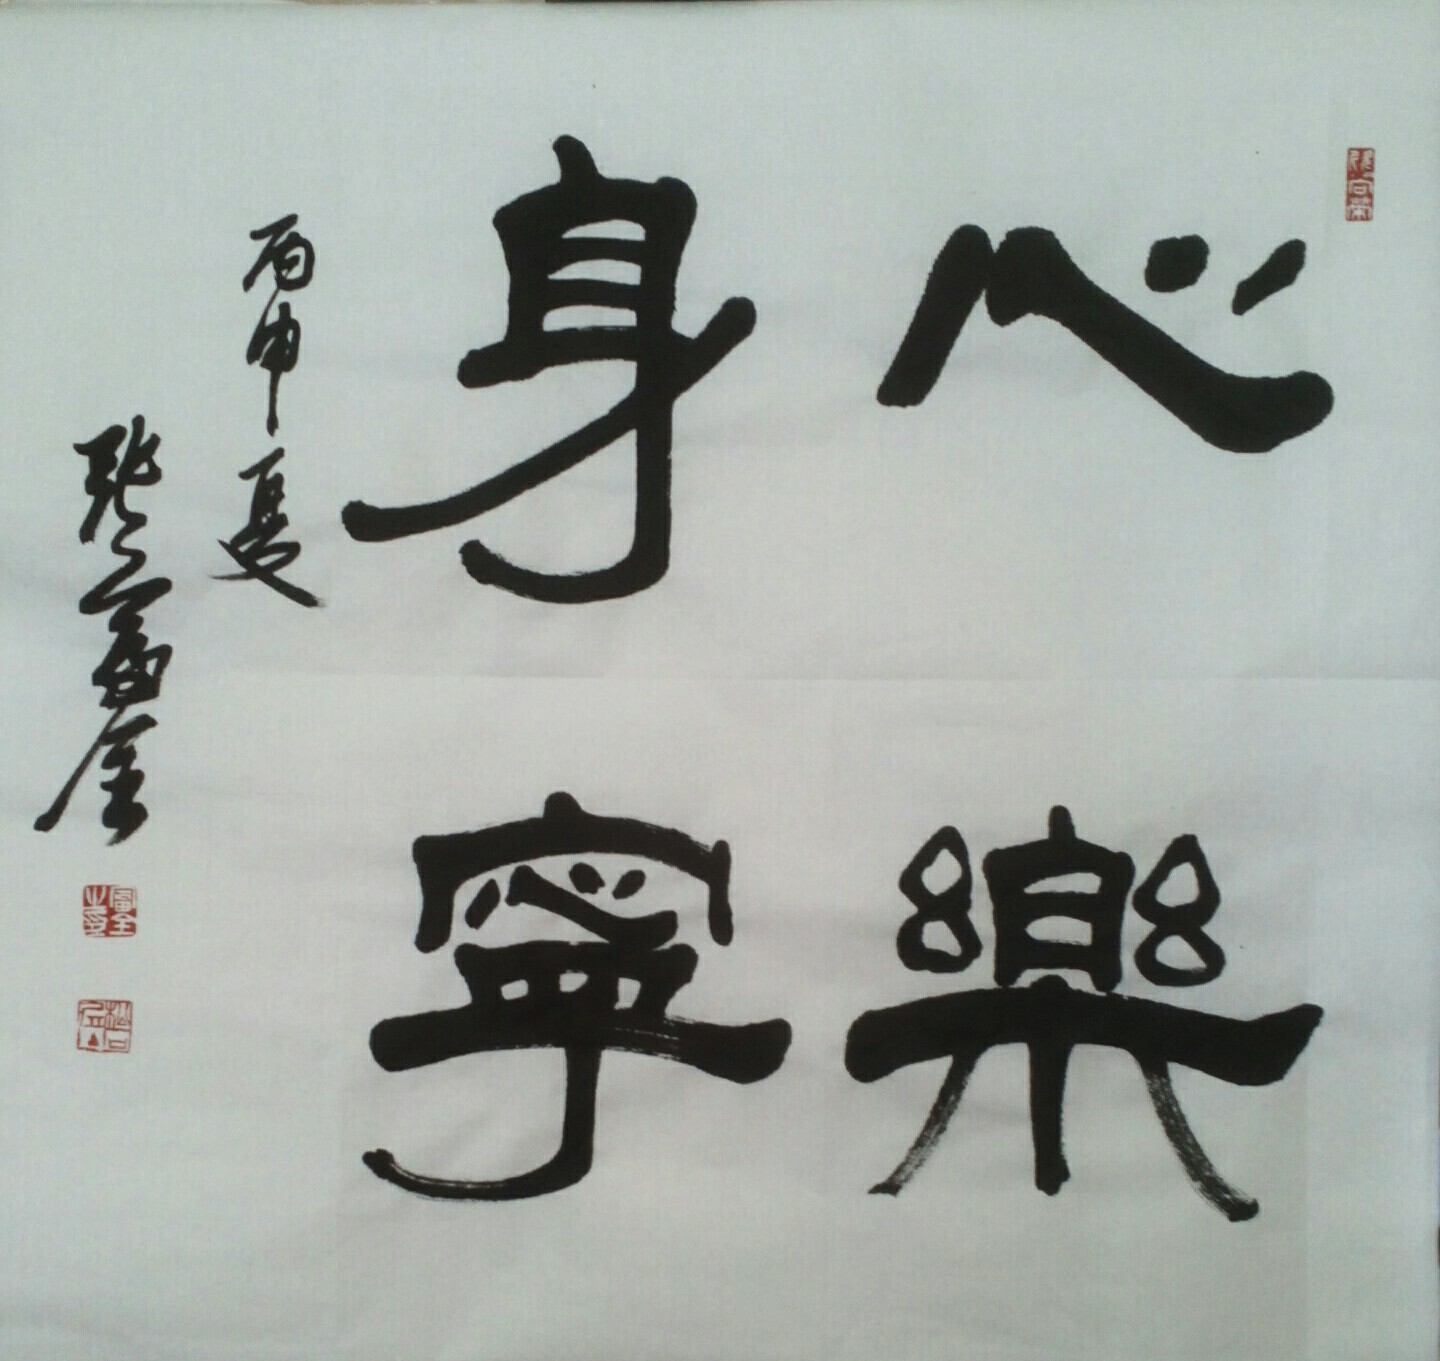 心樂
身寧
丙申夏
張富全